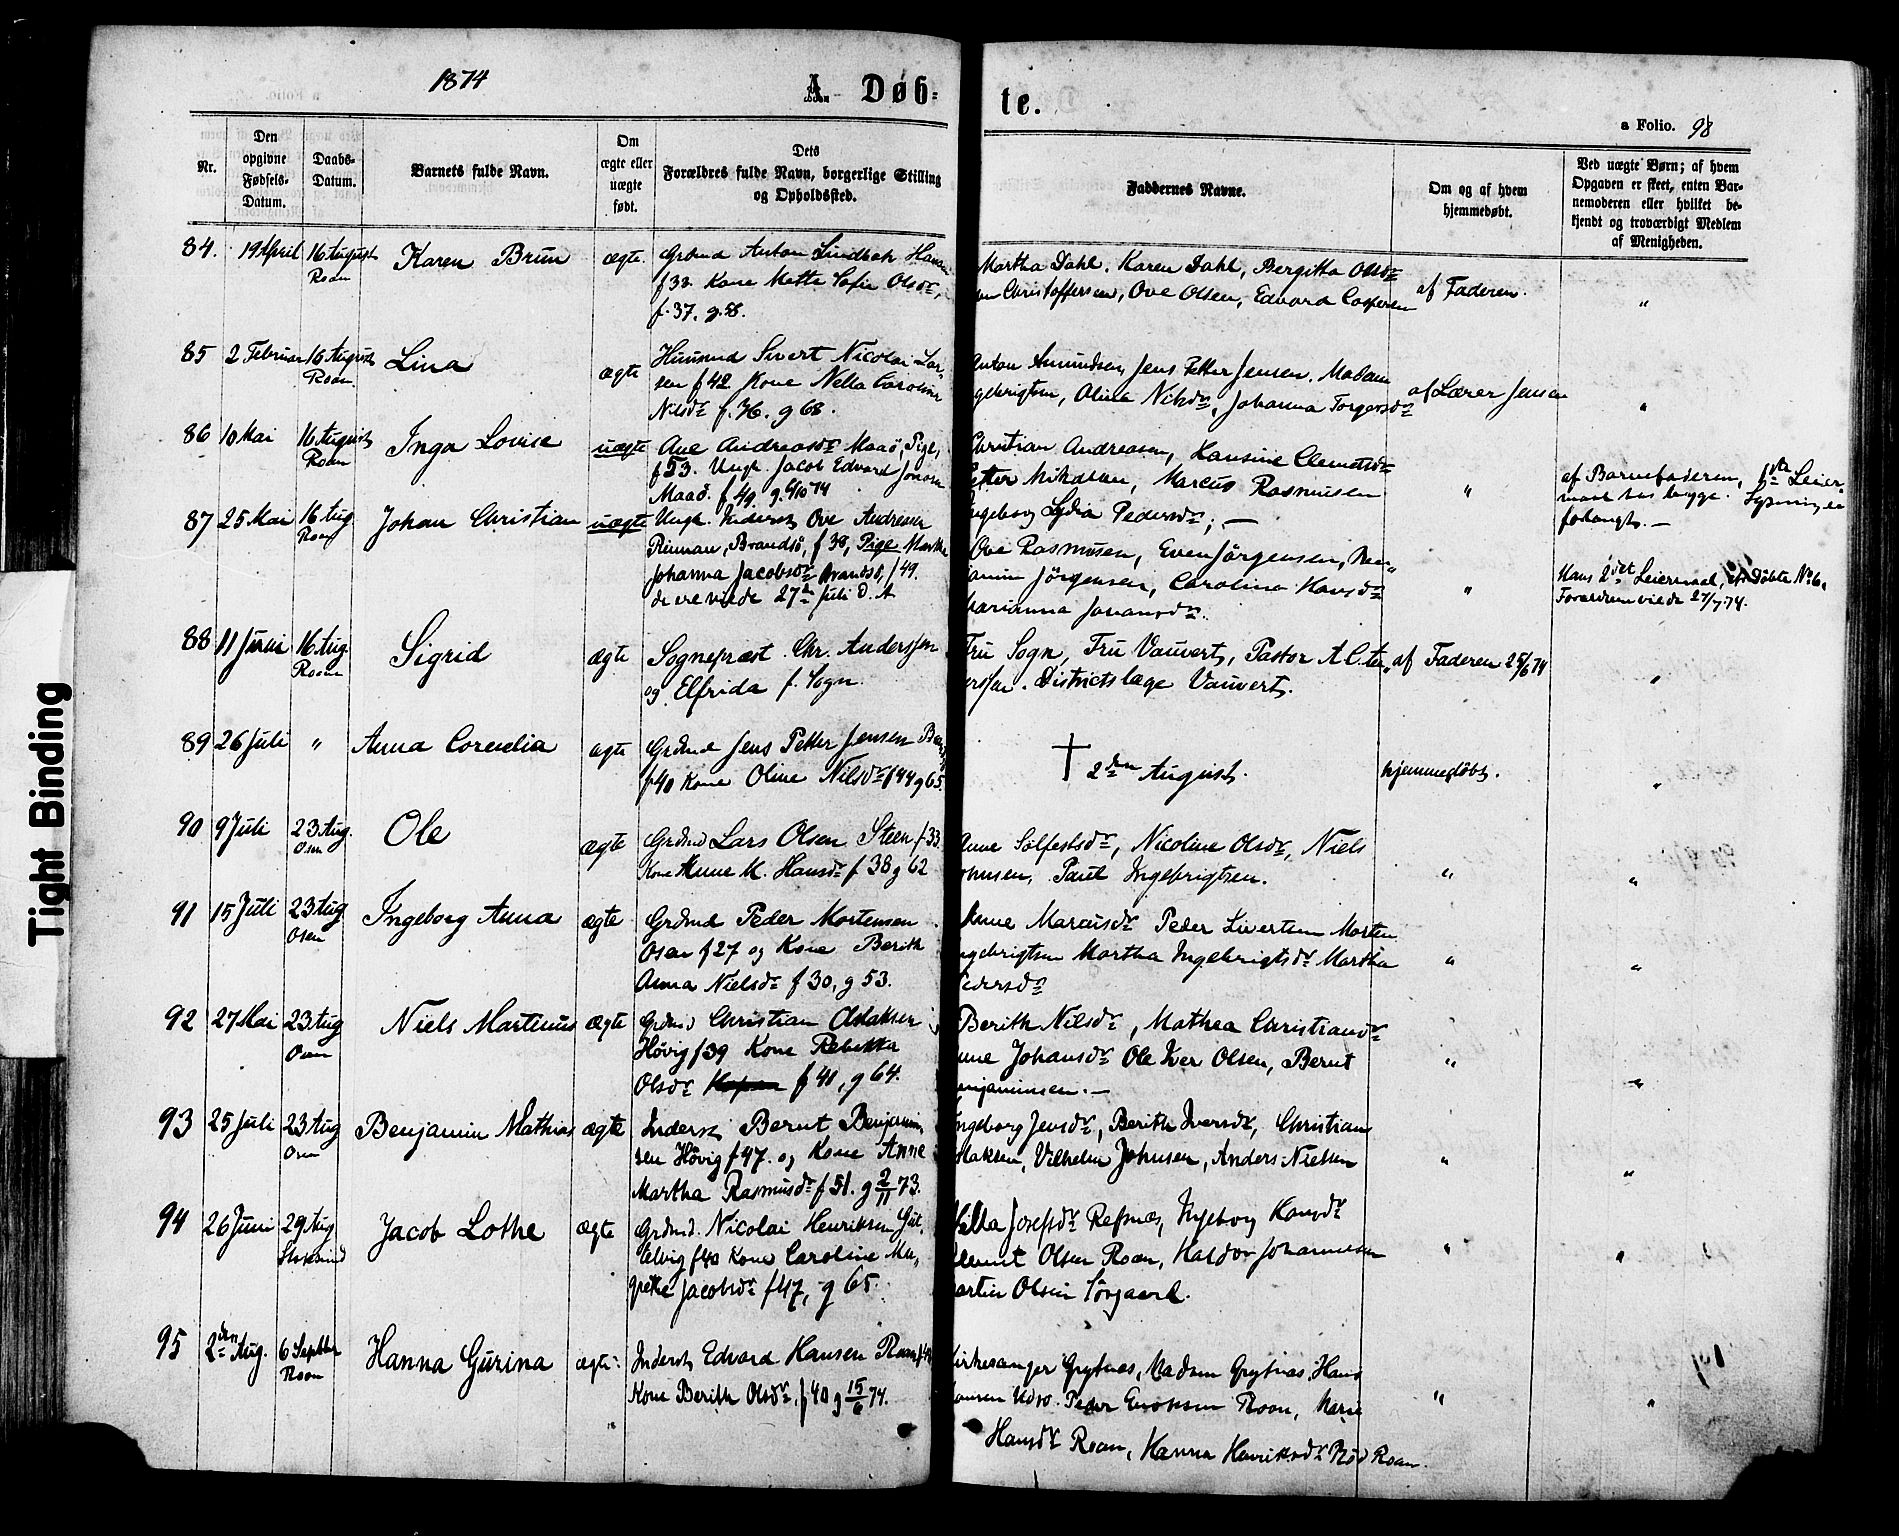 1874
A. Døb-
te.
a Folio. 98
Nr.
Den opgivne Fødsels-Datum.
Daabs-Datum.
Barnets fulde Navn.
Om ægte eller uægte født.
Dets Forældres fulde Navn, borgerlige Stilling og Opholdssted.
Faddernes Navne.
Om og af hvem hjemmedøbt.
Ved uægte Børn; af hvem Opgaven er skeet, enten Bar-nemoderen eller hvilket be-kjendt og troværdigt Medlem af Menigheden.
84. 19 April 16 August Roan Karen Brun ægte Grdmd Anton Lindbak Hansen
f 33 Kone Mette Sofie Olsdr,
f. 37. g. 58.
Martha Dahl. Karen Dahl, Bergitta Olsdr
Christoffersen, Ove Olsen, Edvard Caspersen
af Faderen. "
85 2 Februar 16 August Roan Lina ægte Huusmd Sivert Nicolai Lar-
sen f 42 Kone Nella Caroline
Nilsdr f. 46. g 68.
Anton Amundsen, Jens Petter Jensen. Madam
gebrigtsen, Oline Nilsdr, Johanna Torgersdr
af Lærer Jensen "
86 10 Mai 16 August Roan Inga Lovise uægte Ane Andreasdr Maaö, Pige,
f 53. Ungk. Jacob Edvard Jonsen
Maaö. f 49.
Christian Andreasen, Hansine Clemetsdr
Petter Mikalsen, Marcus Rasmusen
Ingeborg Lydia Pedersdr; —
" af Barnefaderen, Leier-
87 25 Mai 16 Aug Roan Johan Christian uægte Ungk. Inderst Ove Andreas
Brandsö, f 38, Pige Martha
Johanna Jacobsdr Brandsö, f 49.
de ere viede 27de Juli D. A
Ove Rasmusen, Even Jörgensen, Ben-
jamin Jörgensen, Carolina Hansdr
Marianna Johansdr.
" Hans 2det Leiermaal, Döbte No 6.
Forældrene viede 27/7 74.
88 11 Juni 16 Aug. Roan Sigrid ægte Sognepræst Chr. Anderssen
og Elfrida f. Sogn.
Fru Sogn, Fru Vauvert, Pastor A.C.
Districtslæge Vauvert.
af Faderen 25/6 74 "
89 26 Juli " Anna Cornelia ægte Grdmd Jens Petter Jensen
f 40 Kone Oline Nilsdr f 44 g 65.
† 2den August.
hjemmedöbt. "
90 9 Juli 23 Aug. Osen Ole ægte Grdmd Lars Olsen Steen f. 33.
Kone Anne M. Hansdr f 38 g 62
Anne Sölfestsdr, Nicoline Olsdr, Niels
Johnsen, Paul Ingebrigtsen.
" "
91 15 Juli 23 Aug Osen Ingeborg Anna ægte Grdmd Peder Mortensen
Osen f 27 og Kone Berith
Anna Nielsdr f 30, g 53.
Anne Marcusdr Peder Sivertsen Morten
Ingebrigtsen Martha Ingebrigtsdr Martha
Pedersdr
" "
92 27 Mai 23 Aug Osen Niels Martinus ægte Grdmd Christian Aslaksen
Hövig f 39 Kone Rebekka
Olsdr f 41, g 64.
Berith Nilsdr, Mathea Christiansdr
Anne Johansdr Ole Iver Olsen, Bernt
Benjaminsen. —
" "
93 25 Juli 23 Aug Osen Benjamin Mathias ægte Inderst Bernt Benjamin-
sen Hövig f 47. og Kone Anne
Martha Rasmusdr f 51. g 2/11 73.
Ingeborg Jensdr, Berith Iversdr, Christian
Aslaksen, Vilhelm Johnsen, Anders Nielsen
" "
94 26 Juni 29 Aug Stoksund Jacob Lothe ægte Grdmd. Nicolai Henriksen Gut-
telvig f 40 Kone Caroline Ma-
grethe Jacobsdr f 47, g 65.
Josefsdr Refsnæs, Ingeborg Hansdr
Clemet Olsen Roan, Haldor Johannesen
Martin Olsen Sörgaard.
" "
95 2den Aug. 6 Septbr Roan Hanna Gurina ægte. Inderst Edvard Hansen Roan
Kone Berith Olsdr f 40 g 15/6 74.
"
Kirkesanger Grytnæs, Madam Grytnæs, Hans
Hansen Peder Roan, Marie
Hansdr Roan, Hanna Henriksdr Roan.
" "
Tight Binding